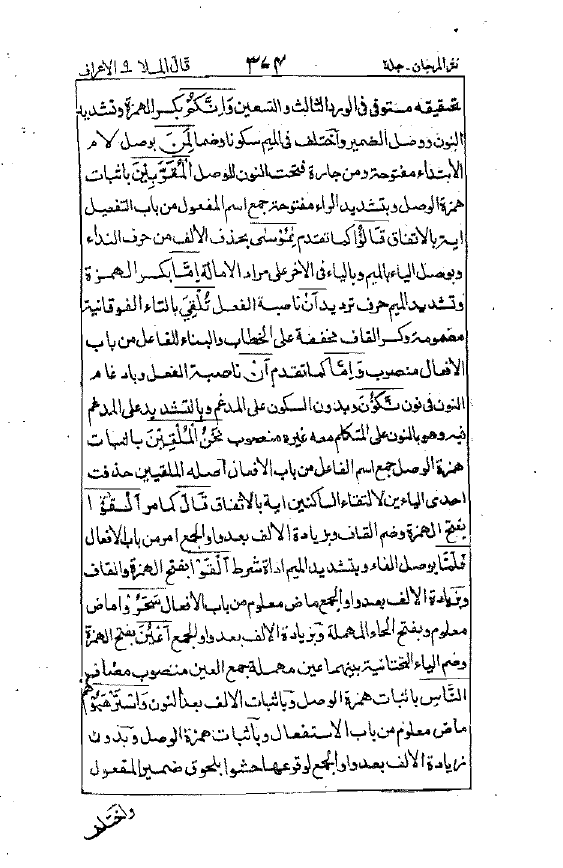 نثر المرجان - جلد ٣٧٤ قال الملا ٩ الاعراف
تحقيقه مستوفى فى الورد الثالث والتسعين وَاِنَّكُمْ بكسر الهمزة وتشديد
النون ووصل الضمير واختلف فى الميم سكونا وضما لَمِنَ بوصل لام
الابتداء مفتوحة ومن جارة فتحت النون للوصل الْمُقَرَّبِيْنَ باثبات
همزة الوصل وبتشديد الراء مفتوحة جمع اسم المفعول من باب التفعيل
اية بالاتفاق قَالُوْا كما تقدم يٰمُوْسٰى بحذف الالف من حرف النداء
وبوصل الياء بالميم وبالياء فى الاخر على مراد الامالة اِمَّا بكسر الهمزة
وتشديد الميم حرف ترديد اَنْ ناصبة الفعل تُلْقِىَ بالتاء الفوقانية
مضمومة وكسر القاف مخففة على الخطاب والبناء للفاعل من باب
الافعال منصوب وَاِمَّا كما تقدم اَنْ ناصبة الفعل وبادغام
النون فى نون نَّكُوْنَ وبدون السكون على المدغم وبالتشديد على المدغم
فيه وهو بالنون على المتكلم معه غيره منصوب نَحْنُ الْمُلْقِيْنَ باثبات
همزة الوصل جمع اسم الفاعل من باب الافعال اصله الملقيين حذفت
احدى الياءين لالتقاء الساكنين اية بالاتفاق قَالَ كما مر اَلْقُوْا
بفتح الهمزة وضم القاف وبزيادة الالف بعد واو الجمع امر من باب الافعال
فَلَمَّا بوصل الفاء وبتشديد الميم اداة شرط اَلْقَوْا بفتح الهمزة والقاف
وبزيادة الالف بعد واو الجمع ماض معلوم من باب الافعال سَحَرُوْا ماض
معلوم وبفتح الحاء المهملة وبزيادة الالف بعد واو الجمع اَعْيُنَ بفتح الهمزة
وضم الياء التحتانية بينهما عين مهملة جمع العين منصوب مضاف
النَّاسِ باثبات همزة الوصل وباثبات الالف بعد النون وَاسْتَرْهَبُوْهُمْ
ماض معلوم من باب الاستفعال وباثبات همزة الوصل وبدون
زيادة الالف بعد واو الجمع لوقوعها حشوا بلحوق ضمير المفعول
واختلف